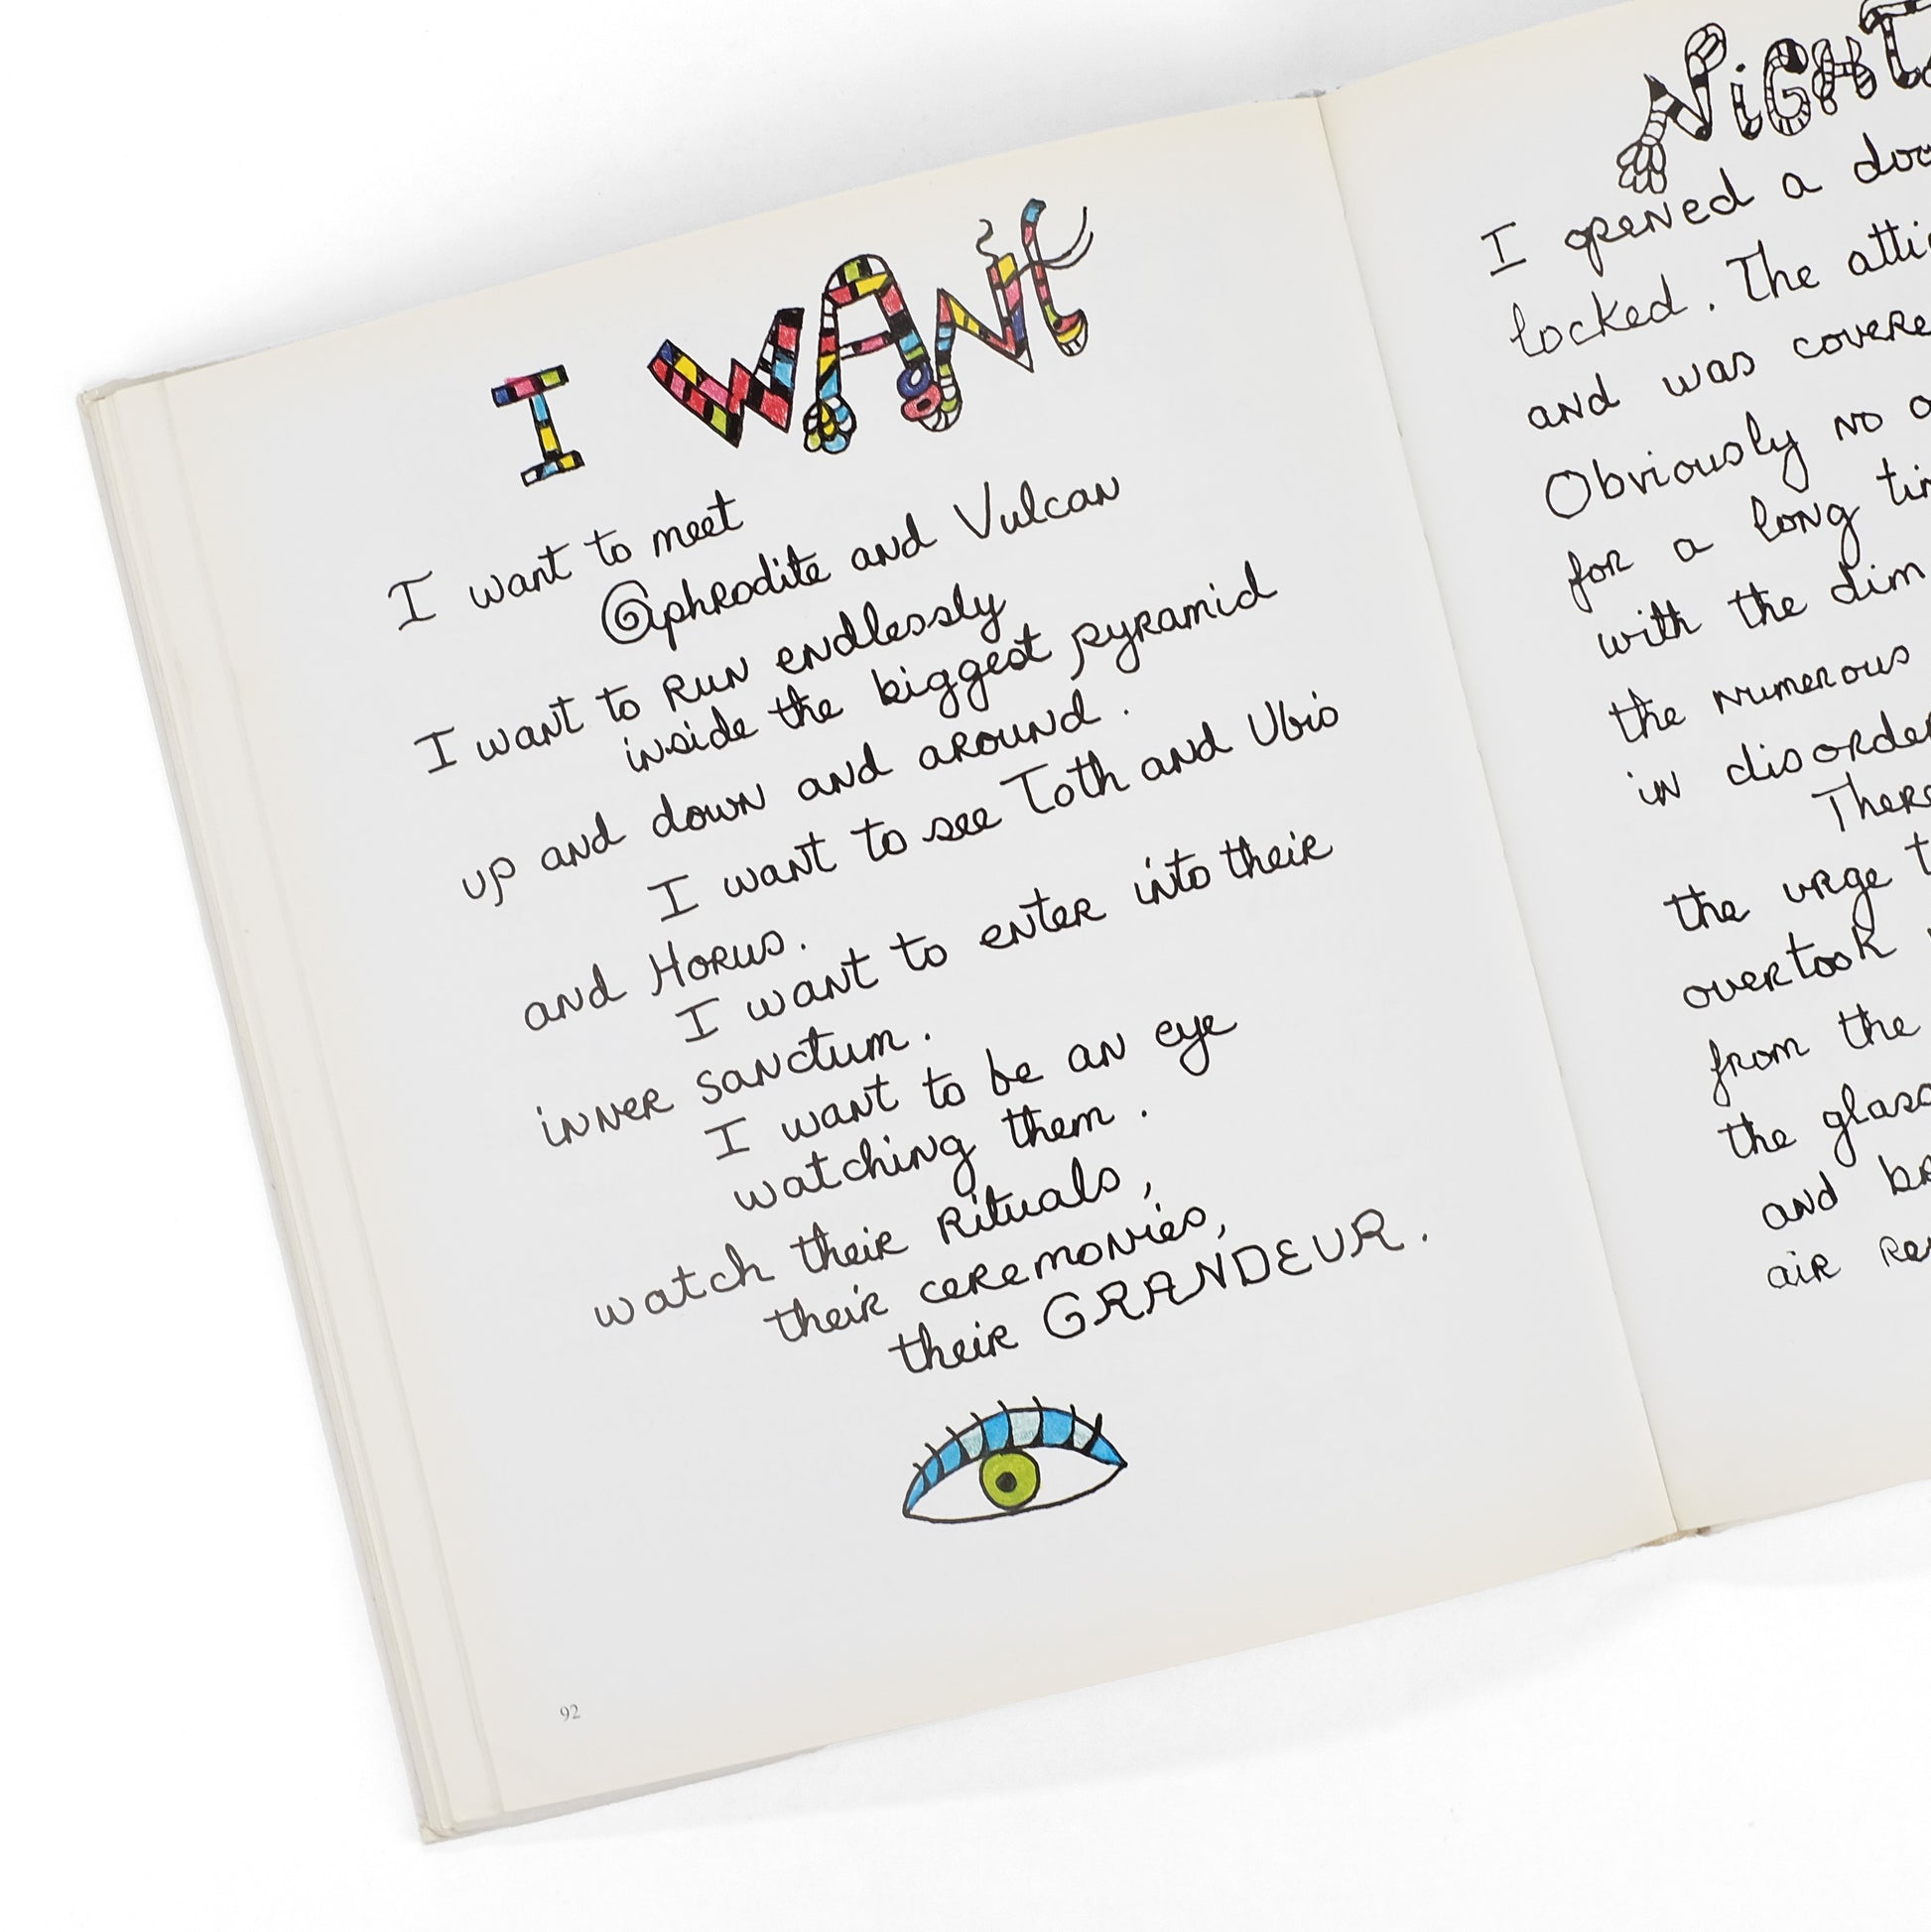 I WANT
I want to meet
Aphrodite and Vulcan
I want to RUN endlessly
inside the biggest pyramid
up and down and around.
I want to see Toth and Ubis
and Horus.
I want to enter into their
inner sanctum.
I want to be an eye
watching them.
watch their Rituals,
their ceremonies,
their GRANDEUR.
92
I opened a
locked. The
and was
Obviously no
for a long
with the dim
the numerous
in
the urge
overtook
from the
the
and
air